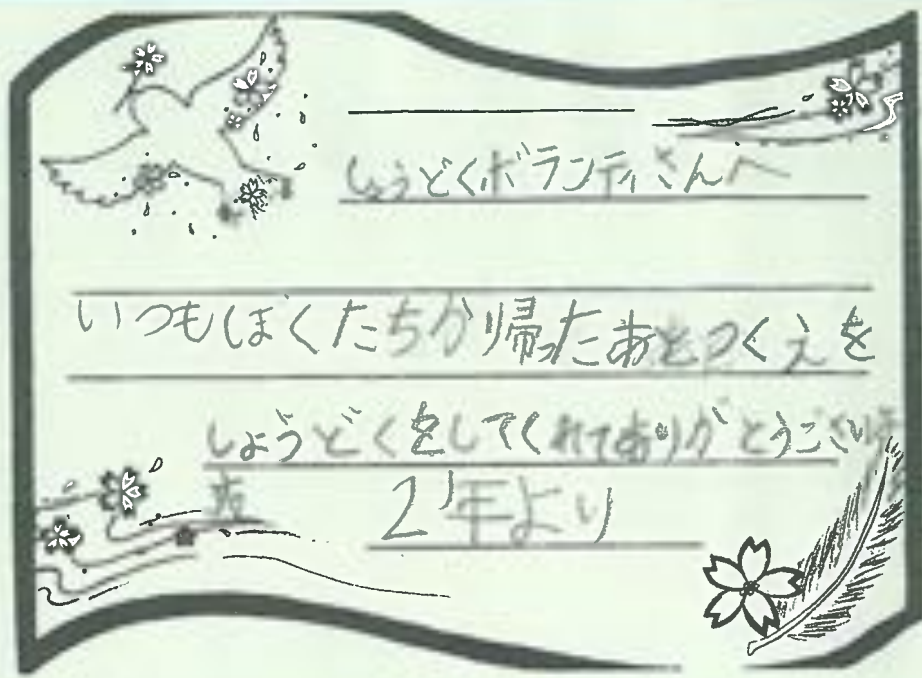 しょうどくボランティさんへ
いつもぼくたちが帰ったあとつくえを
しょうどくをしてくれてありがとうございま
す 2年より